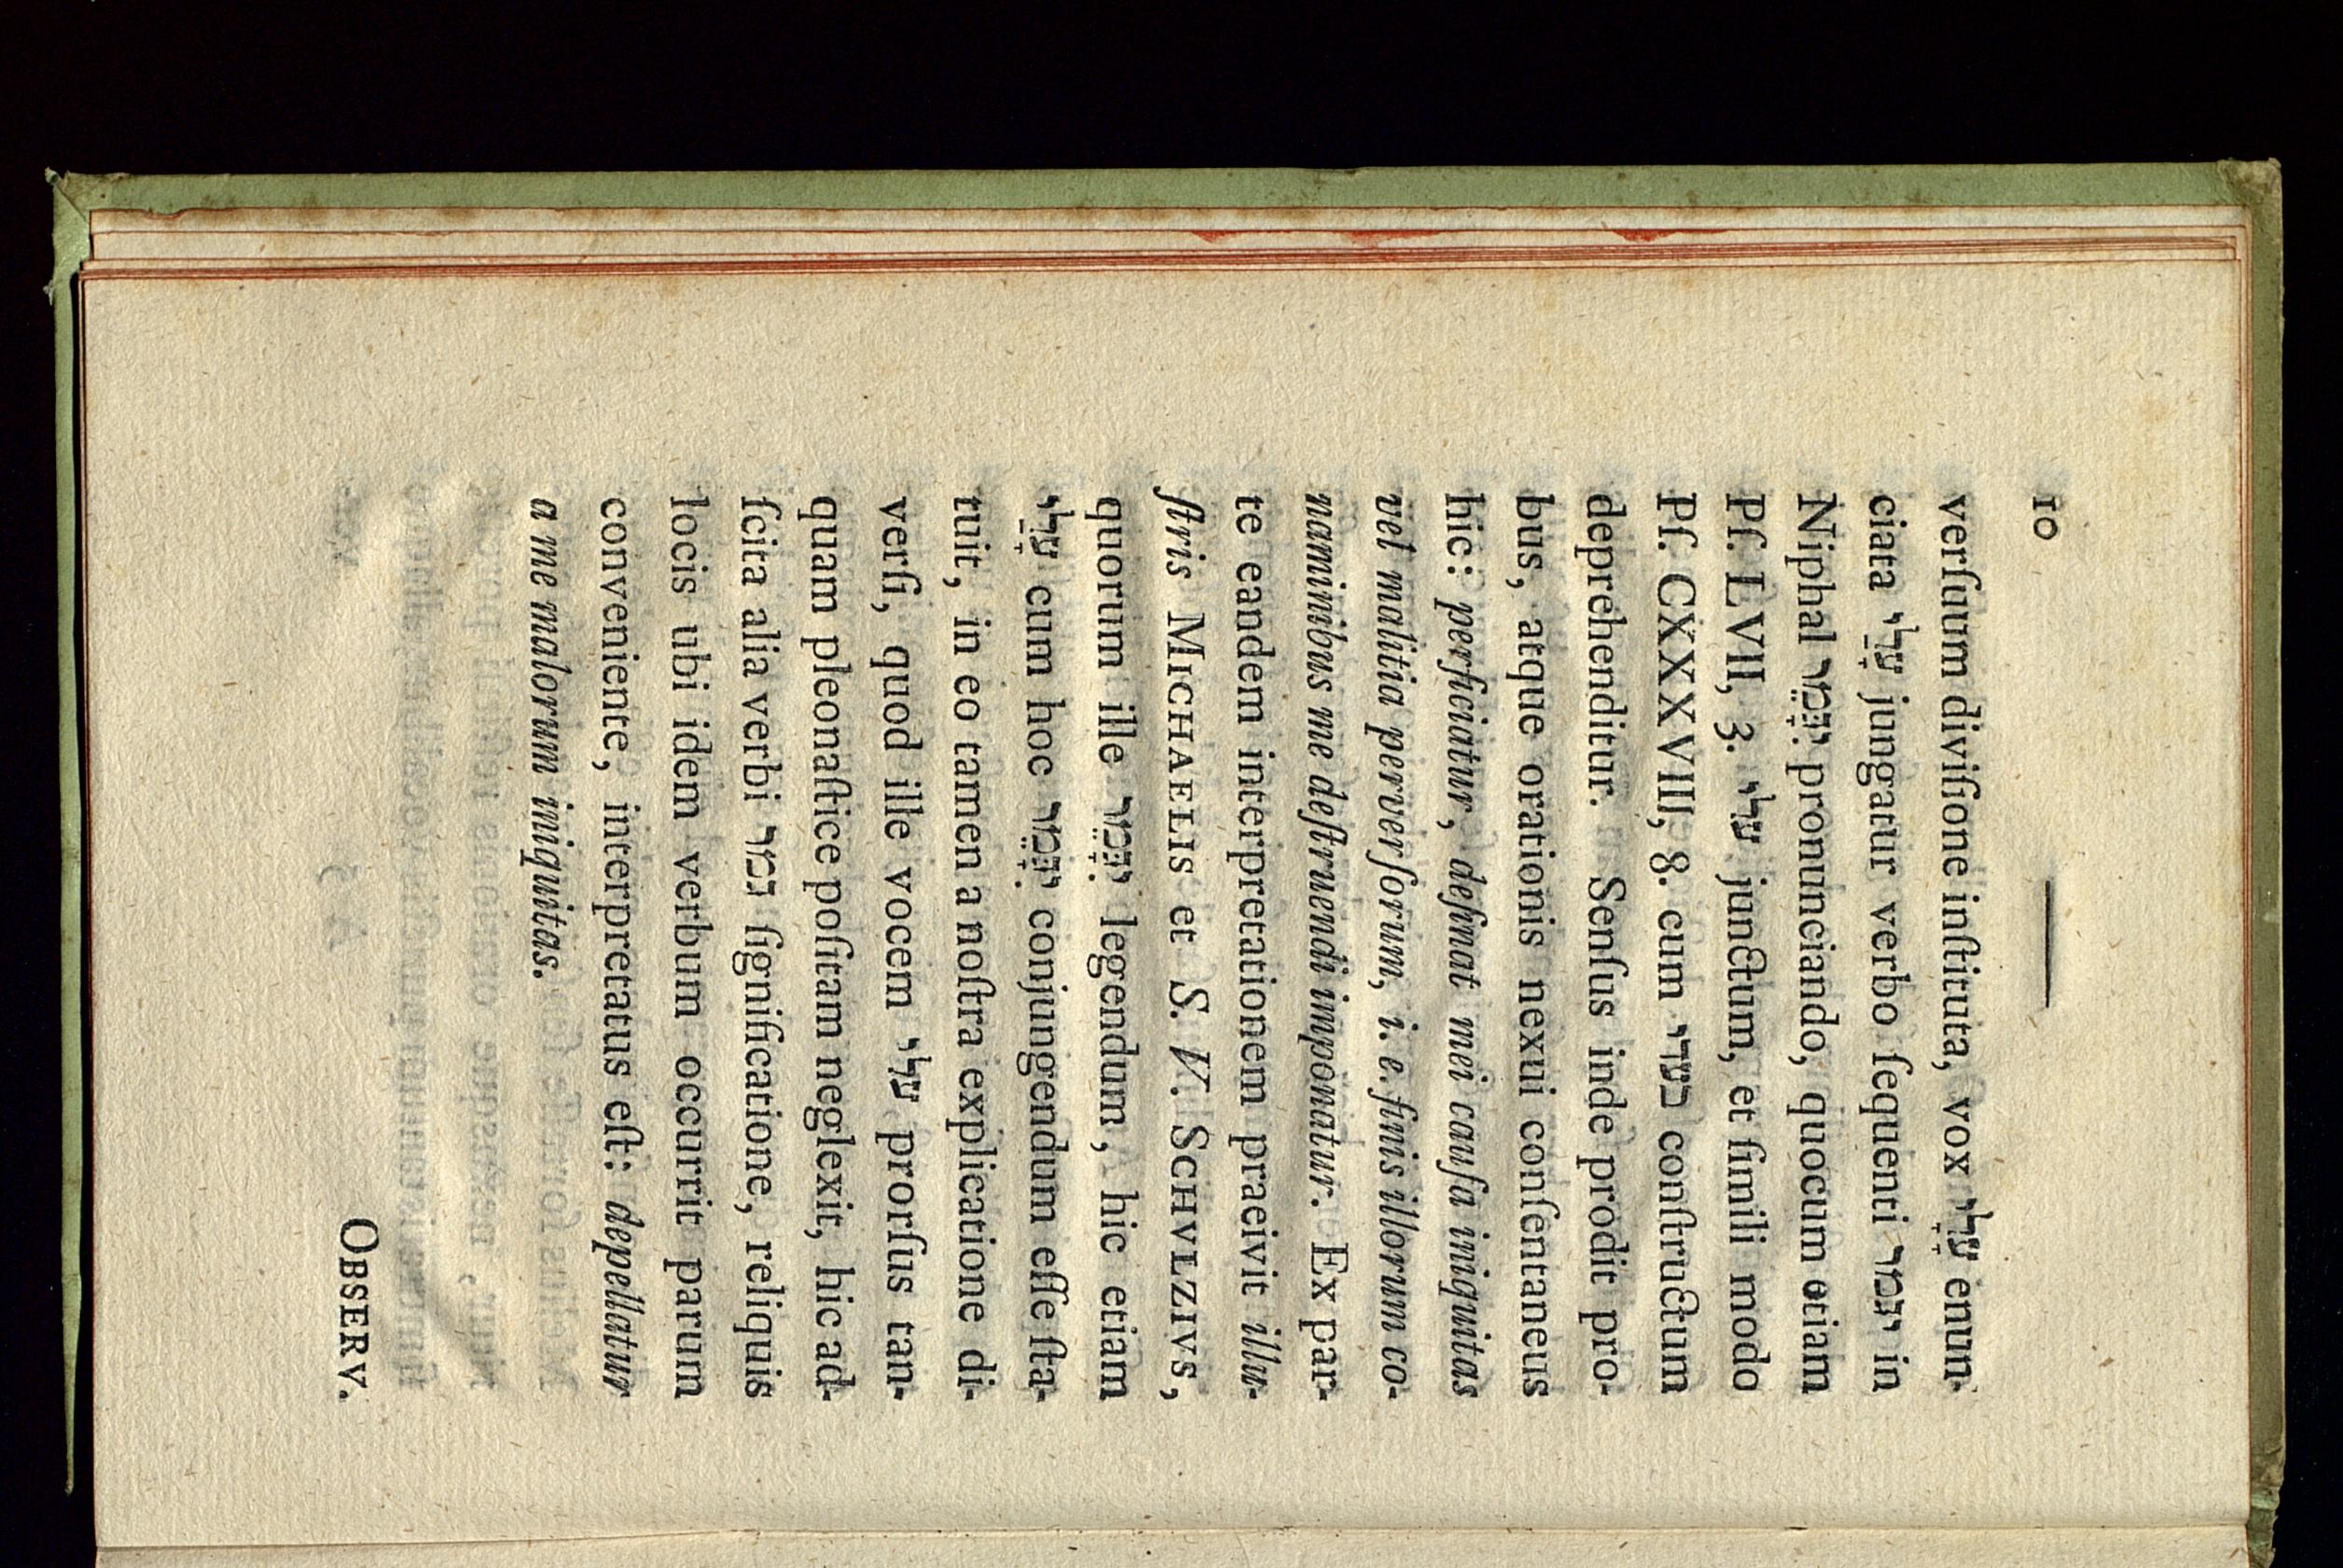 10
verſuum diviſione inſtituta, vox עָלַי enun-
ciata עָלַי jungatur verbo ſequenti יגמר in
Niphal יִגָּמֵר pronunciando, quocum etiam
Pſ. LVII, 3. עלי junctum, et ſimili modo
Pſ. CXXXVIII, 8. cum בעדי conſtructum
deprehenditur. Senſus inde prodit pro-
bus, atque orationis nexui conſentaneus
hic: perficiatur, deſinat mei cauſa iniquitas
vel malitia perverſorum, i. e. finis illorum co-
naminibus me deſtruendi imponatur. Ex par-
te eandem interpretationem praeivit illu-
ſtris MICHAELIS et S. V. SCHVLZIVS,
quorum ille יִגָּמֵר legendum, hic etiam
עָלַי cum hoc יִגָּמֵר conjungendum eſſe ſta-
tuit, in eo tamen a noſtra explicatione di-
verſi, quod ille vocem עלי prorſus tan-
quam pleonaſtice poſitam neglexit, hic ad-
ſcita alia verbi גמר ſignificatione, reliquis
locis ubi idem verbum occurrit parum
conveniente, interpretatus eſt: depellatur
a me malorum iniquitas.
OBSERV.